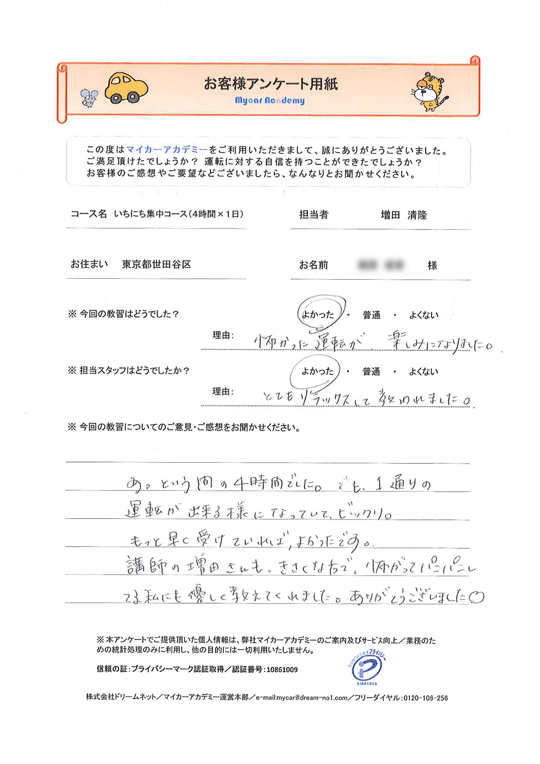 お客様アンケート用紙
Mycar Academy
この度はマイカーアカデミーをご利用いただきまして、誠にありがとうございました。
ご満足頂けたでしょうか？ 運転に対する自信を持つことができたでしょうか？
お客様のご感想やご要望などございましたら、なんなりとお聞かせください。
コース名 いちにち集中コース（4時間×1日） 担当者 増田 清隆
お住まい 東京都世田谷区 お名前 様
※ 今回の教習はどうでした？ よかった ・ 普通 ・ よくない
理由： 怖かった運転が、楽しみになりました。
※ 担当スタッフはどうでしたか？ よかった ・ 普通 ・ よくない
理由： とてもリラックスして教われました。
※ 今回の教習についてのご意見・ご感想をお聞かせください。
あっという間の4時間でした。でも、1通りの
運転が出来る様になっていて、ビックリ。
もっと早く受けていれば、よかったです。
講師の増田さんも、きさくな方で、怖がってパニパニし
てる私にも優しく教えてくれました。ありがとうございました○
※ 本アンケートでご提供頂いた個人情報は、弊社マイカーアカデミーのご案内及びサービス向上／業務のた
めの統計処理のみに利用し、他の目的には一切利用いたしません。
信頼の証：プライバシーマーク認証取得／認証番号：10861009
株式会社ドリームネット／マイカーアカデミー運営本部／e-mail:mycar@dream-no1.com／フリーダイヤル：0120-106-256